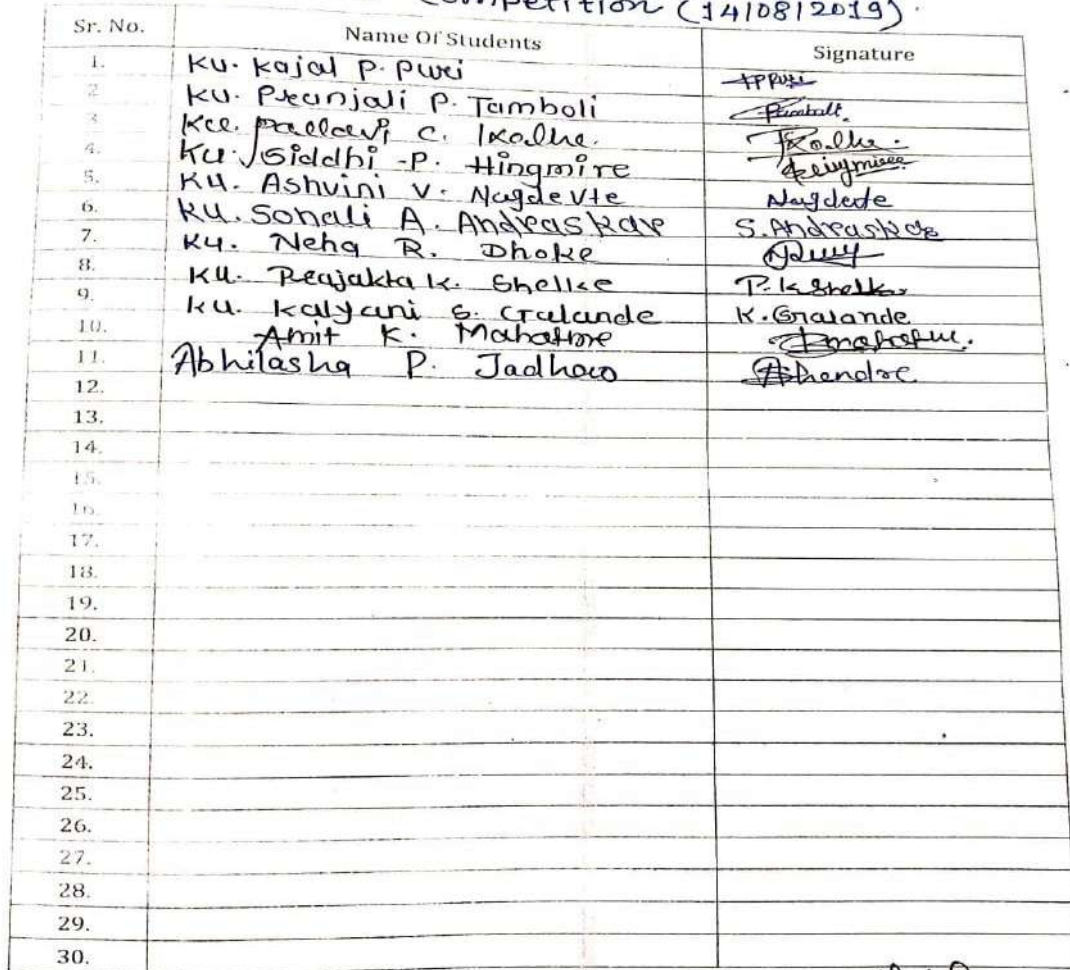 Competition (14/08/2019).
Sr. No. Name Of Students Signature
1. Ku. Kajal P. Puri
2. Ku. Pranjali P. Tamboli
3. Ku. Pallavi C. Kolhe. Kolhe.
4. Ku. Siddhi P. Hingmire
5. Ku. Ashvini V. Nagdevte Nagdevte
6. Ku. Sonali A. Andraskar S. Andraskar
7. Ku. Neha R. Dhoke
8. Ku. Prajakta K. Shelke P. K Shelke
9. Ku. Kalyani S. Gralande K. Gralande
10. Amit K. Mahatme
11. Abhilasha P. Jadhao
12.
13.
14.
15.
16.
17.
18.
19.
20.
21.
22.
23.
24.
25.
26.
27.
28.
29.
30.